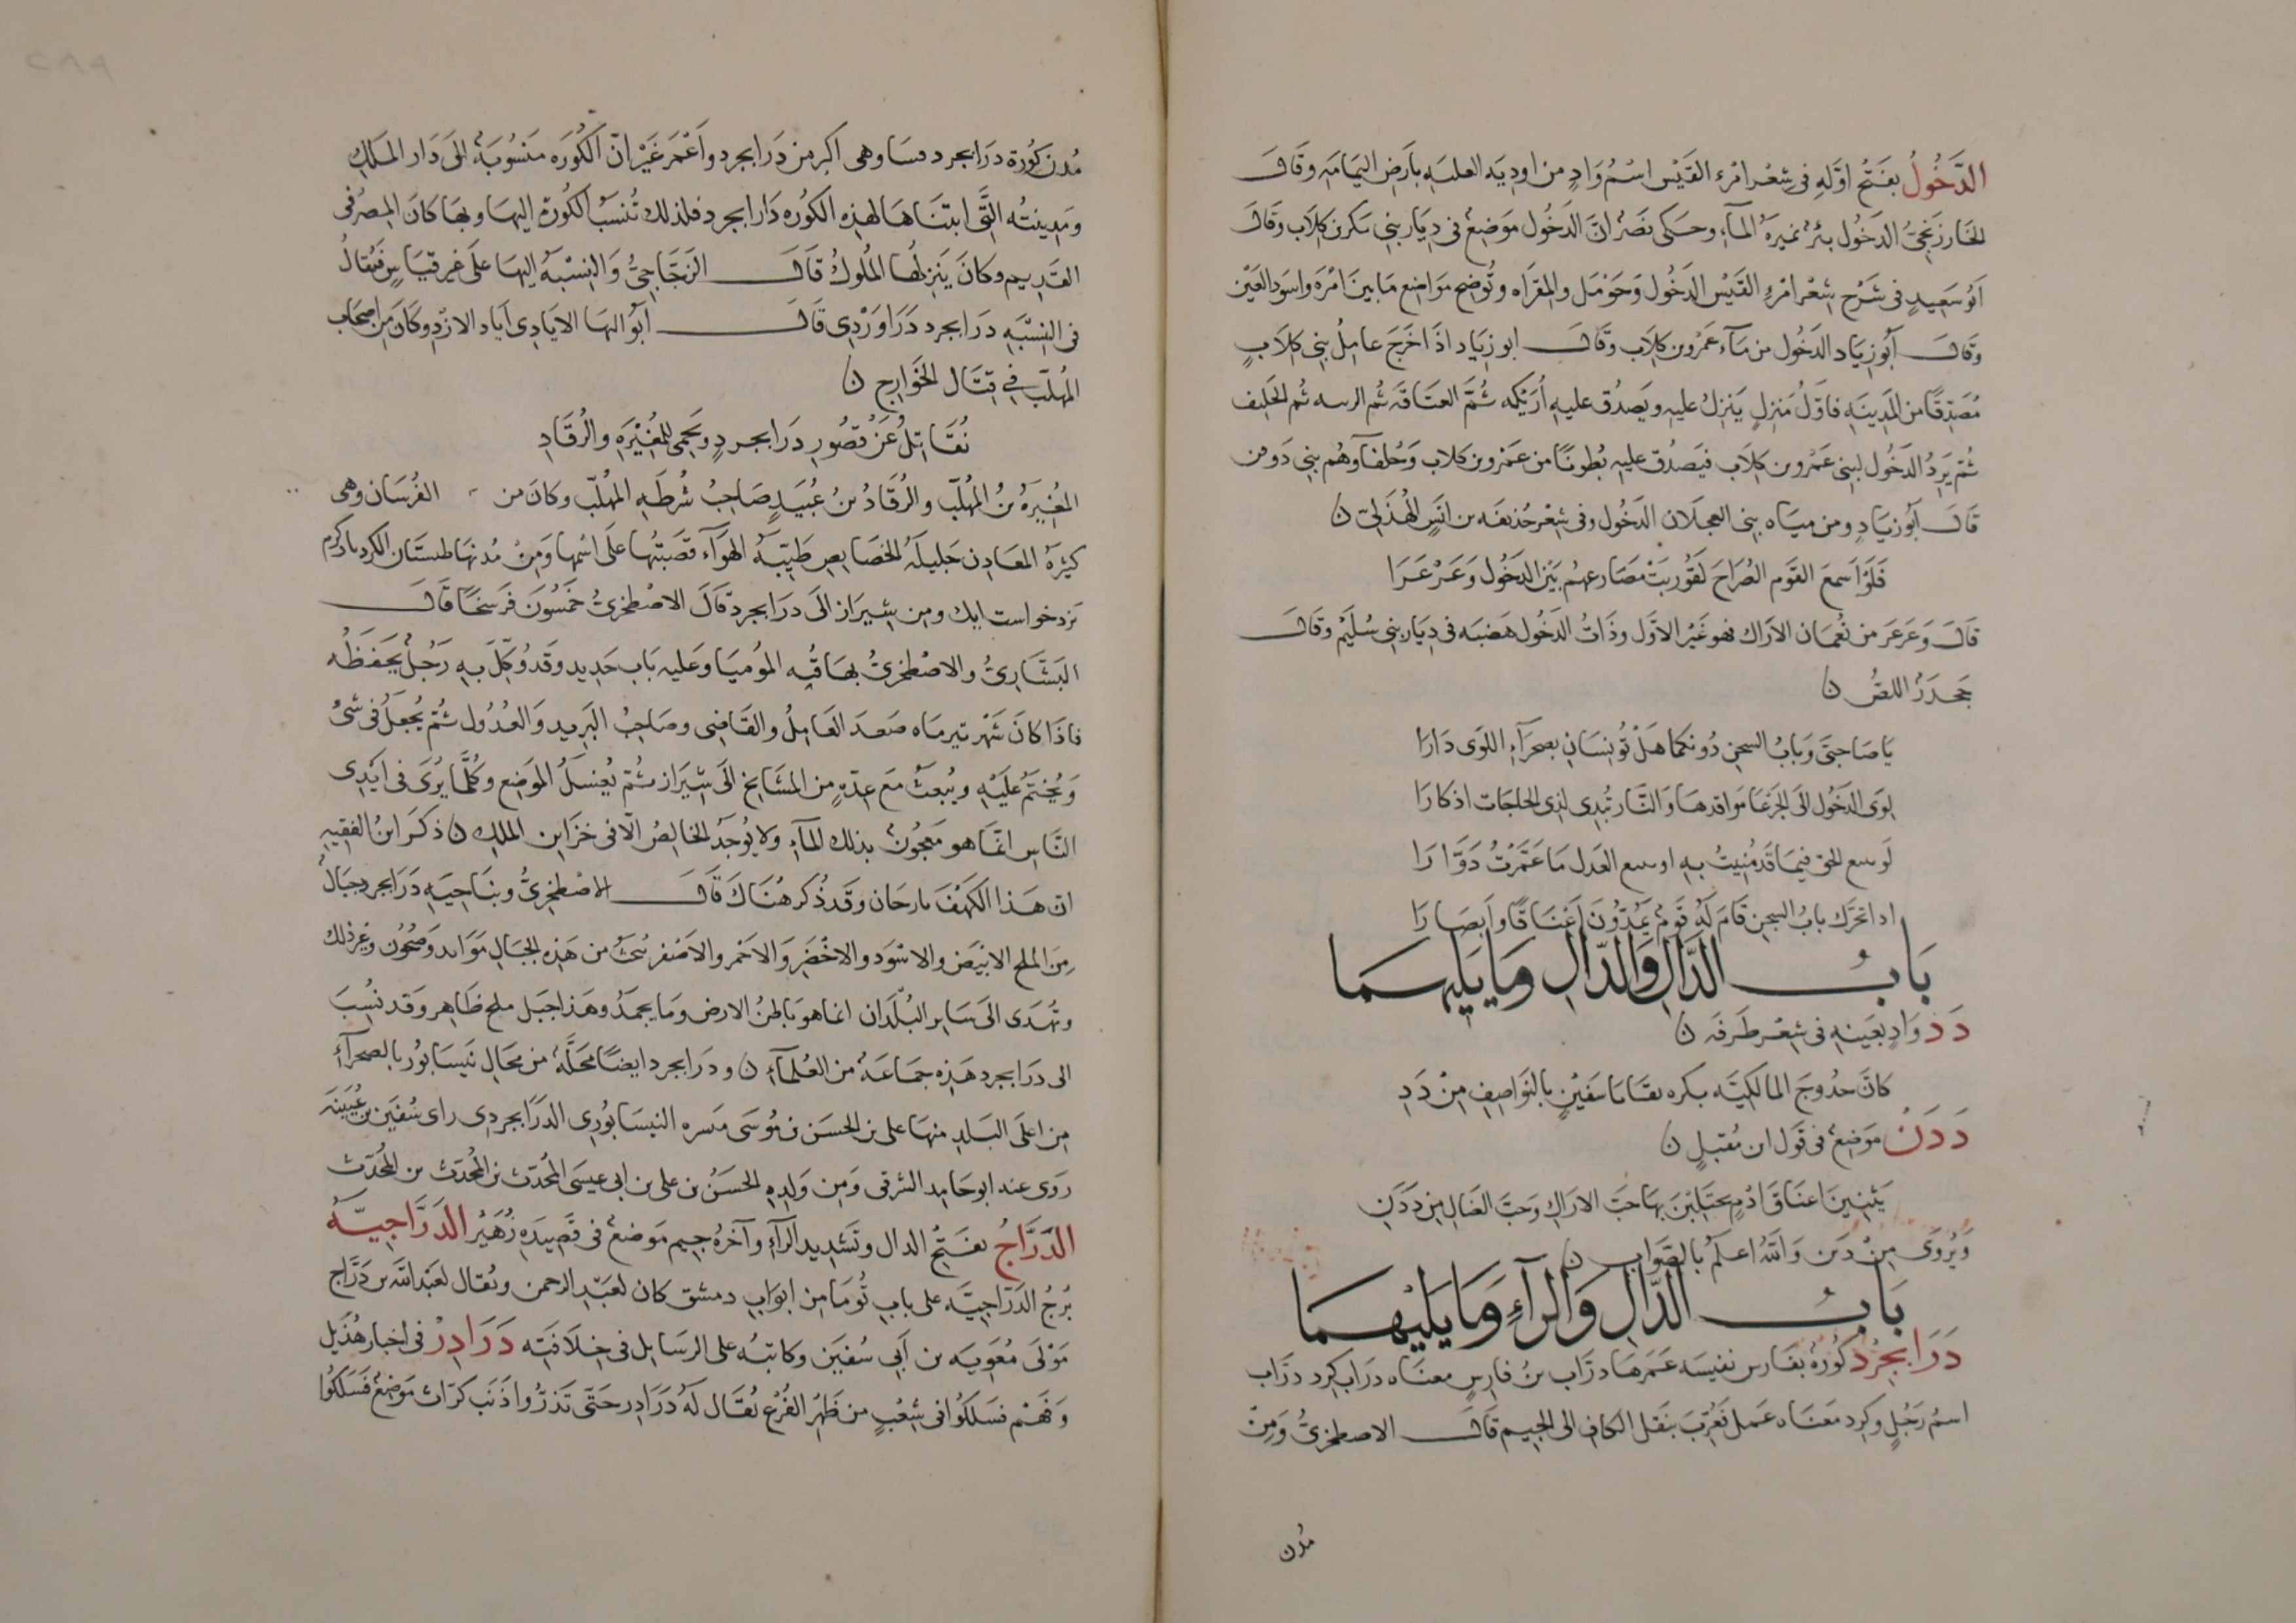 الدَّخُولُ بفَتْحِ اوَّلِهِ فى شعْر امْرء القَيْس اسْمُ وَادٍ من اوديَه العليَه بأرَضِ اليمَامَه وقَالَ
الخَارزَنجىُّ الدخُول بئرٌ نميرَهُ المآءِ وحَكى نَصْرٌ انَّ الدَخُول مَوَضِعٌ فى دِيَار بنى بَكر بن كلَاب وقَالَ
اَبُو سَعيدٍ فى شَرْحِ شِعْر امْرِءِ القَيْس الدَخُول وَحَوْمَل والمقَرَاه وتُوضِح مَوَاضِع مَا بينَ امْرَه واسَود العَيْن
وقَالَ اَبُو زيَاد الدَخُول من مآءِ عَمْرُو بن كِلَاب وقَالَ ابو زيَاد اذَا خَرَجَ عامِلُ بنى كلَابٍ
مُصَدِقًا من المَدِينَه فاوَلُ مَنزلٍ يَنزِلُ عليهِ ويَصدُق عليهِ اُرَيْكَه ثمَّ العنَاقَه ثُم الرسه ثُم الحَليف
ثُمّ يَرِدُ الدَخُول لبنى عَمْرو بن كِلَاب فيَصدُق عليهِ بُطونًا من عَمْرو بن كلاب وَحُلفآؤهُم بنى دَوفن
قالَ اَبُو زيَادٍ ومن ميَاه بنى العجلان الدَخُول وفى شِعْر حُذيفَه بن انَسٍ الهُذَلِىّ ن
فَلَوْ اَسمعَ القَوم الصُرَاحَ لَقُورِبَتْ مَصَارعهُم بَيْنَ الدخُول وَعَرْعَرَا
قَالَ وَعَرعَر من نُعمَان الاَرَاك فهو غَيْر الاَوَّل وذَاتُ الدَخُول هَضبَه فى دِيَار بنى سُلَيْم وقَالَ
جَحدَرُ اللصُّ ن
يَا صَاحبَىَّ وَبَابُ السِجن دُونكمَا هَلْ تُونِسَانِ بصَحرَآءِ اللوَى دَارَا
لِوَى الدَخُول الَى الجَرْعَا مَواقدهَا وَالنَّار تُبدِى لذِى الحَاجَات اذكارَا
لَو سع الحق فيمَا قَد مُنِيتُ بهِ او سع العَدل مَا عَمَّرتُ دَوَّارَا
اذا تحَرَّك بابُ السِجن قَامَ لَهُ قَومٌ يَمُدّوُنَ اَعْنَاقًا وابصَارَا
بَابُ الدَّالِ وَالدَّالِ وَمَا يَليهِمَا
دَد وَادٍ بعَينهِ فى شِعْر طَرَفه ن
كانَّ حدُوجَ المالكيَّه بكره بقايَا سَفيْنٍ بالنَوَاصِفِ مِنْ دَدِ
دَدَنُ مَوَضعٌ فى قَول ابن مُقبلٍ ن
يَثنِينَ اعنَاقَ ادْمٍ يَختَلِيْنَ بهَا حبّ الارَاكِ وَحبَّ الضَالِ مِن دَدَنِ
وَيُروَى مِنْ دَنن وَاللهُ اعلَم بالصَّوابِ ن
بَابُ الدَّالِ وَالرآءِ وَمَا يَلِيْهمَا
دَرَابجِرْدُ كُورَهٌ بفَارس نفيسَه عَمَرهَا درَاب بنُ فارِسٍ معنَاه درَاب كِرد درَاب
اسمُ رَجُلٍ وَكِرد مَعَنَاه عَمل فعُرِّبَ بنَقل الكَافِ الى الجيم قَالَ الاصطَخِرىُّ وَمِنْ
مُدُن
مُدن كُورَة درَابجرد فسَا وهى اكبر من دَرَابجرد واَعْمَر غَيْر انّ الكُورَه مَنسُوبَهٌ الىَ دَار الملِكِ
وَمَدِينتُه التَّى ابتنَاهَا لهذِه الكُورَه دَارابجرد فلذلك تُنسَبْ الكُورَة اليهَا وبهَا كانَ المِصرُ فى
القَدِيم وكانَ يَنزِلهَا المُلُوكُ قَالَ الزجَّاجىُّ وَالنِسْبَهُ اليها علىَ غيرِ قيَاسٍ فيُقالُ
فى النِسْبَهِ درَابجرد دَرَاوَرْدِى قَالَ اَبُو البهَا الاياَدِى اَياد الازْدِ وكانَ من اصحَابِ
المُهلّب فِي قِتَال الخَوَارِج ن
نُقَاتِلُ عَنْ قُصُورِ دَرَابجردٍ ونَحمِى للمُغِيْرَهِ والرُقَادِ
المُغيرَهُ بنُ المُهلّب والرُقَادُ بنُ عُبَيدٍ صَاحِبُ شُرطَهِ المُهلّب وكانَ من الفُرْسَان وهى
كثِيرَهُ المَعَادِن جَليلَهُ الخصَايِص طَيّبَهُ الهَوَآء قصَبتُهَا علَى اسْمِها وَمِنْ مُدُنهَا طمستَان الكردبَان كرم
يَزدخواست ايك ومِن شِيرَاز الىَ دَرَابجرد قَالَ الاصْطخرىُّ خَمْسُونَ فَرَسَخًا قَالَ
البَشَارِىُّ والاصْطخرىُّ بهَا قُبّه المُومُيَا وَعَليه بَاب حَدِيد وقَد وُكّلَ بهِ رَجُلٌ يَحفَظُه
فاذَا كانَ شَهْر تيرمَاه صَعدَ العَامِلُ والقَاضِى وصَاحِبُ البَرِيد وَالعُدُول ثُمّ يُجعلُ فى شىْء
وَيُخْتَمُ عَلَيْهِ ويُبعَثُ مَعَ عِدّهٍ من المشَايخ الَى شيَراز ثُمّ يُغسَلُ الموَضِع وكُلّمَا يُرَى فى اَيْدِى
النَّاسِ انمَا هو مَعجُونٌ بذلك المآءِ ولا يُوجَدُ الخالِصُ الّا فى خَزَاين الملِك ن ذكَرَ ابنُ الفقيهِ
ان هَذا الكَهفَ بارجَان وقَد ذُكر هُنَاكَ قَالَ الاصْطخِرىُّ وبنَاحيَهِ دَرَابجرد جبَالٌ
مِنَ الملح الابيَض والاسْوَد والاخْضَر وَالاحْمر والاصْفر يُنحَتُ من هَذِهِ الجبَالِ مَوَايد وَصُحُون وغير ذلك
وتُهدَى الىَ سَايِر البُلّدَان انما هو بَاطِنُ الارض ومَا يجمَدُ وهَذا جبَل ملح ظَاهِر وَقَد نُسِبَ
الى دَرَابجرد هَذِه جَمَاعَهٌ من العُلمَآءِ ن ودرَابجرد ايضًا مَحَلَّهٌ من مَحَالِ نَيسَابُور بالصحرَآءِ
من اعلَى البَلدِ منهَا على بن الحسَن بن مُوسَى مَيسره النيسَابُورِى الدَرَابجردِى راى سُفيَن بن عُيَينَه
روَى عنه ابو حَامِد الشرقى وَمِن وَلدِهِ الحسَنُ بن على بن ابى عيسَى المُحدّث بن المُحدّث بن المُحدّث
الدَرَّاجُ بفَتحِ الدال وتَشدِيد الرآءِ وآخرُهُ جِيم مَوَضِعٌ فى قَصِيدَهِ زُهَيرُ الدَرَّاجيّه
بُرْجُ الدَرّاجِيَّه على بابِ تُومَا مِن ابوَابِ دمشق كان لعَبْدِ الرحمن ويُقال لعَبْد الله بن دَرّاج
مَوْلَى مُعَويَه بن اَبِى سُفيَن وكاتبُه على الرسَايِل فى خلَافَتِه دَرَادِرْ فى اخبَار هُذَيل
وَفَهْم فسَلكُوا فى شِعْبٍ من ظَهْر الفُرْع يُقَال لَهُ دَرَادِر حَتّى تَذرّوا ذَنَب كرَاث مَوَضِعٌ فَسَلَكُوا